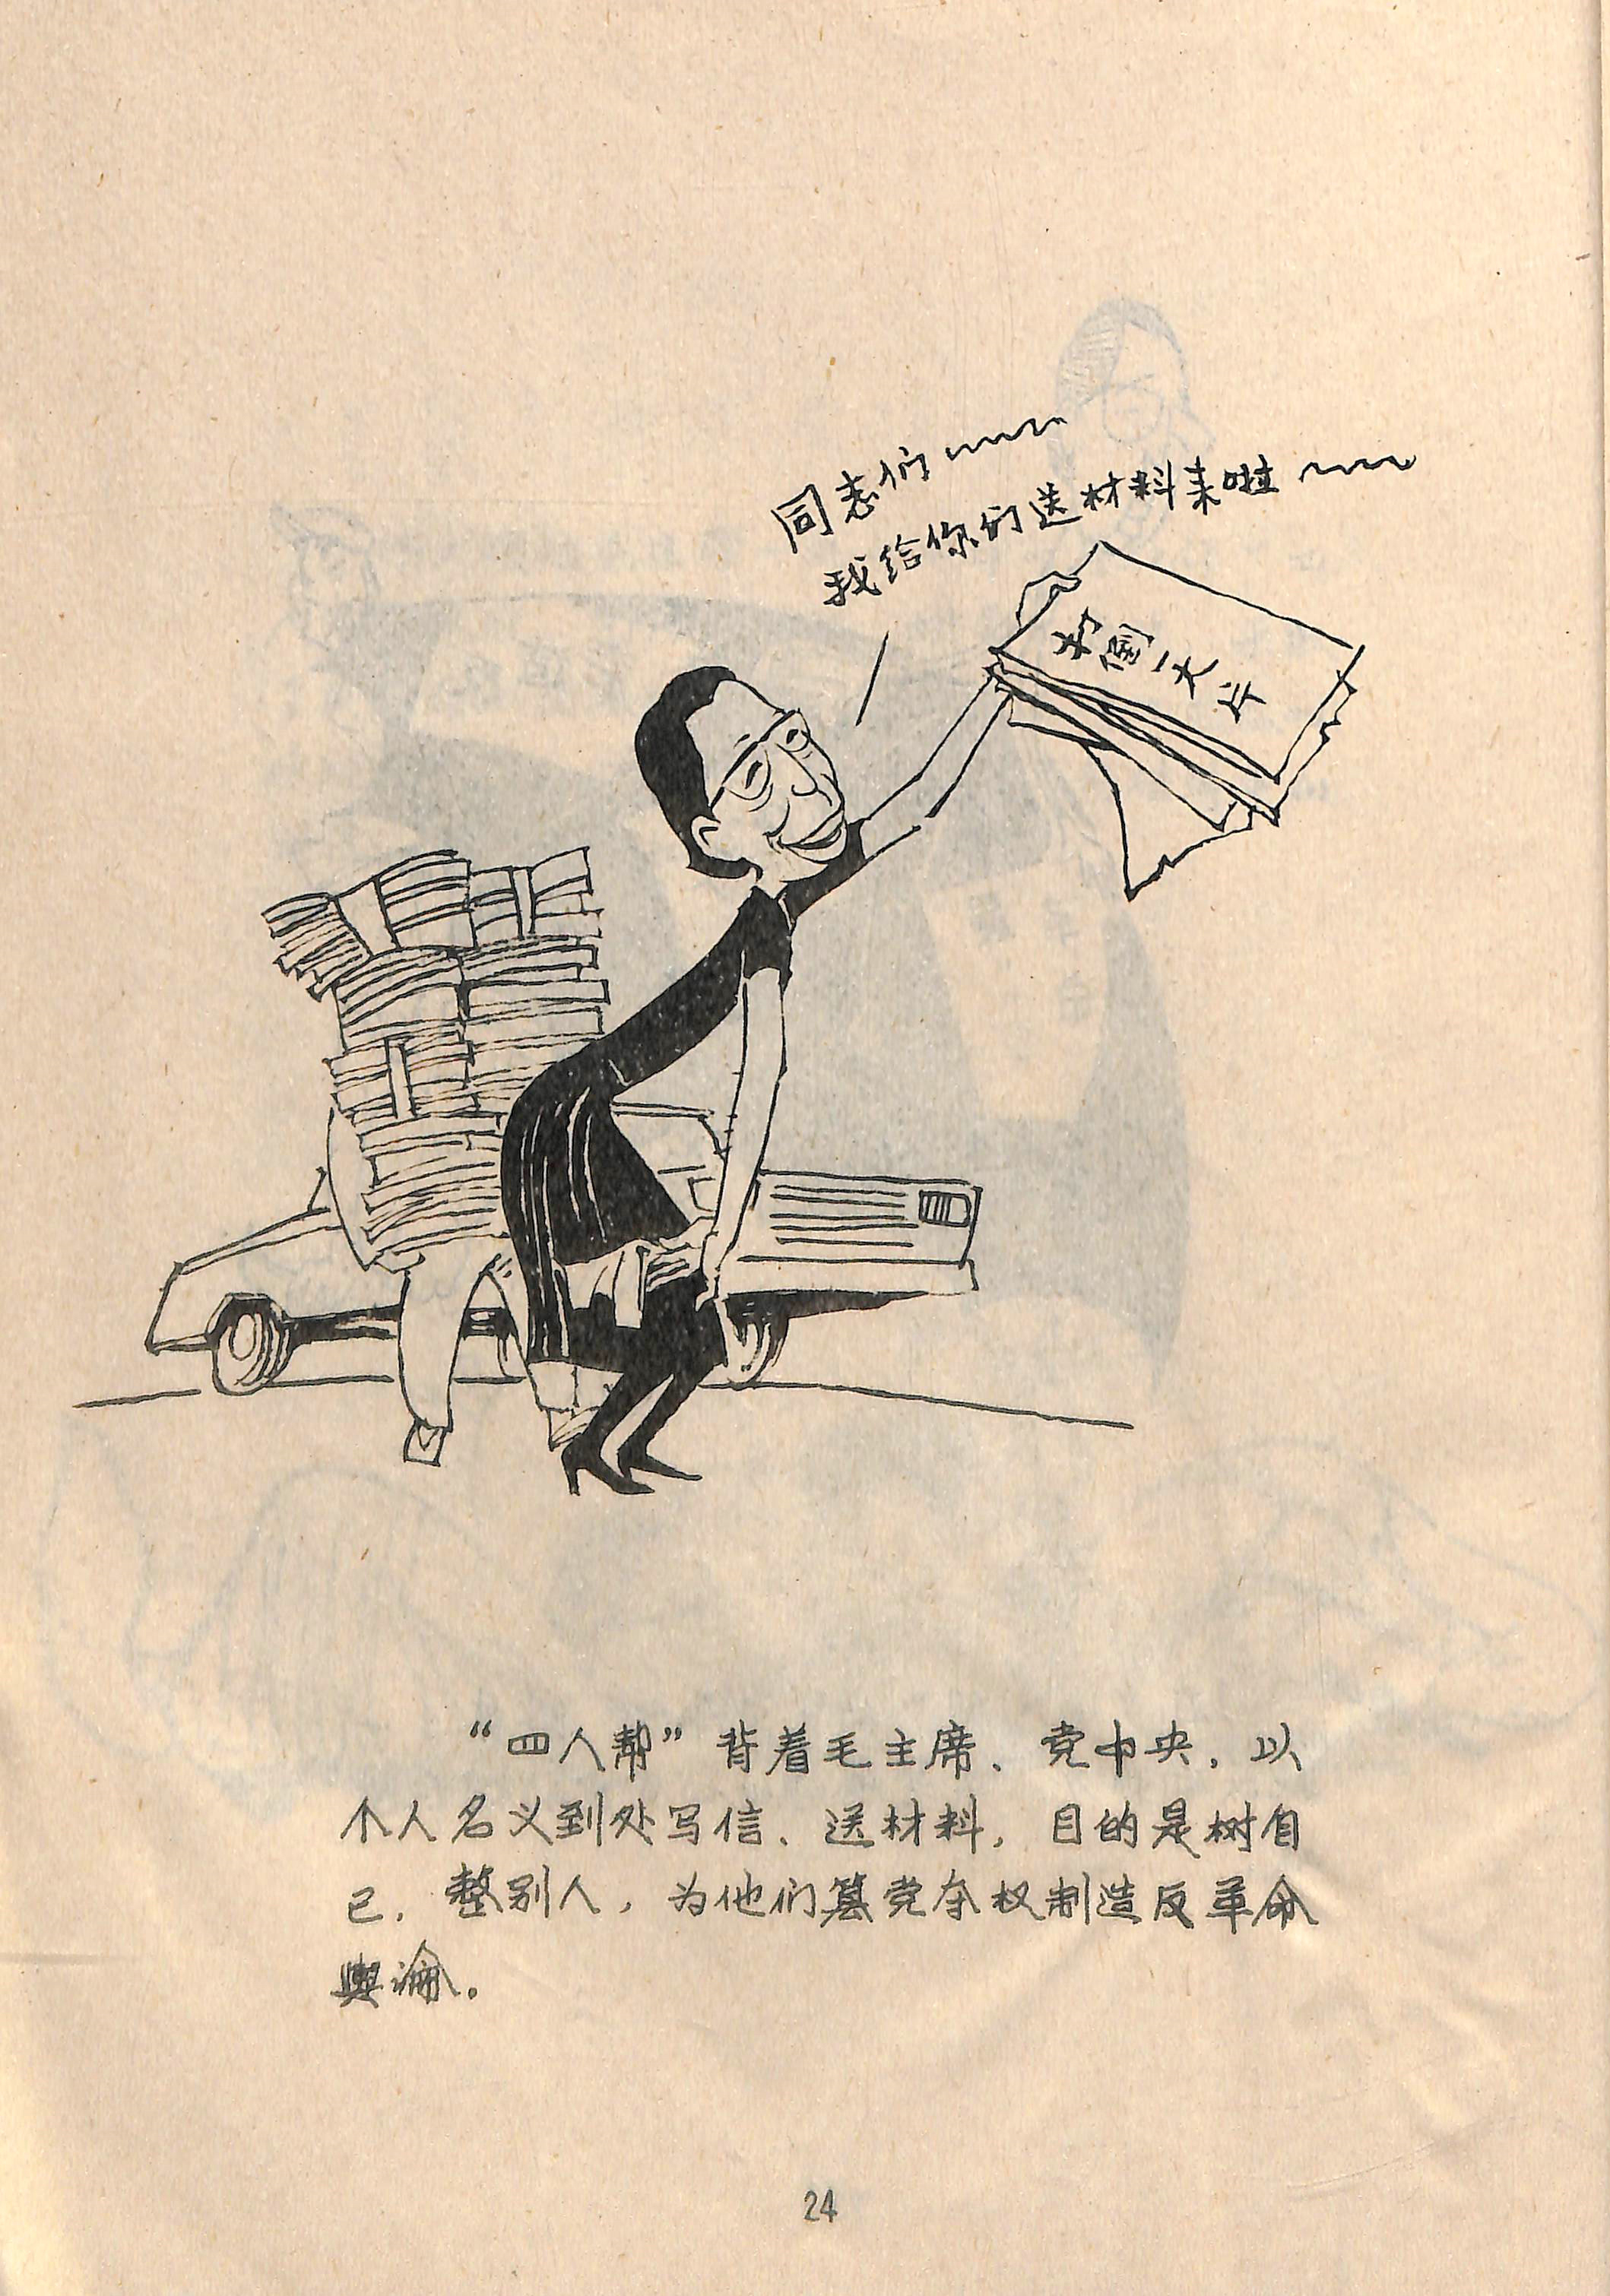 同志们
我给你们送材料来啦
打倒一大片
“四人帮”背着毛主席、党中央，以
个人名义到处写信、送材料，目的是树自
己，整别人，为他们篡党夺权制造反革命
舆论。
24